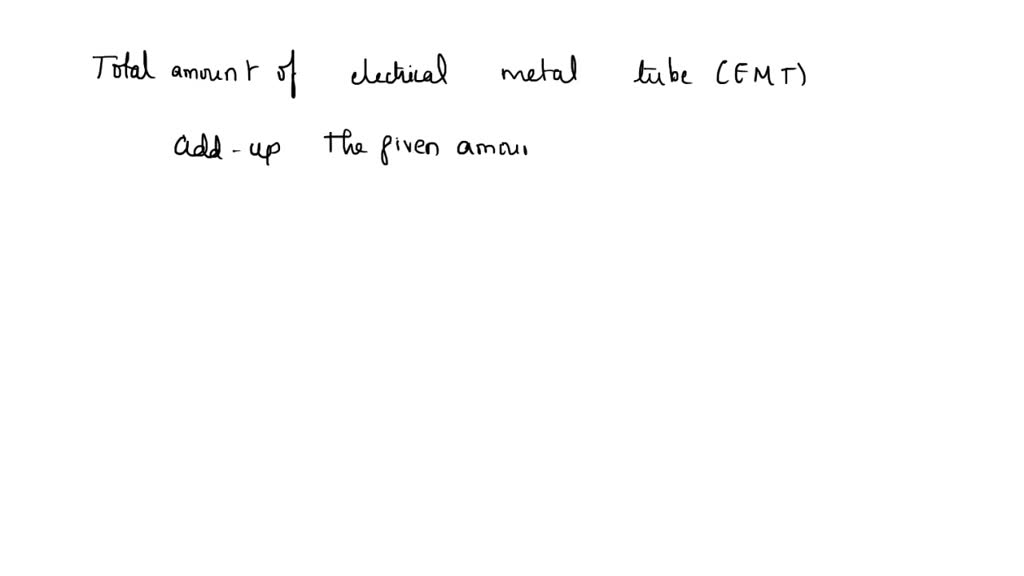 Total amount of electrical metal tube (EMT)
add-up the given amou